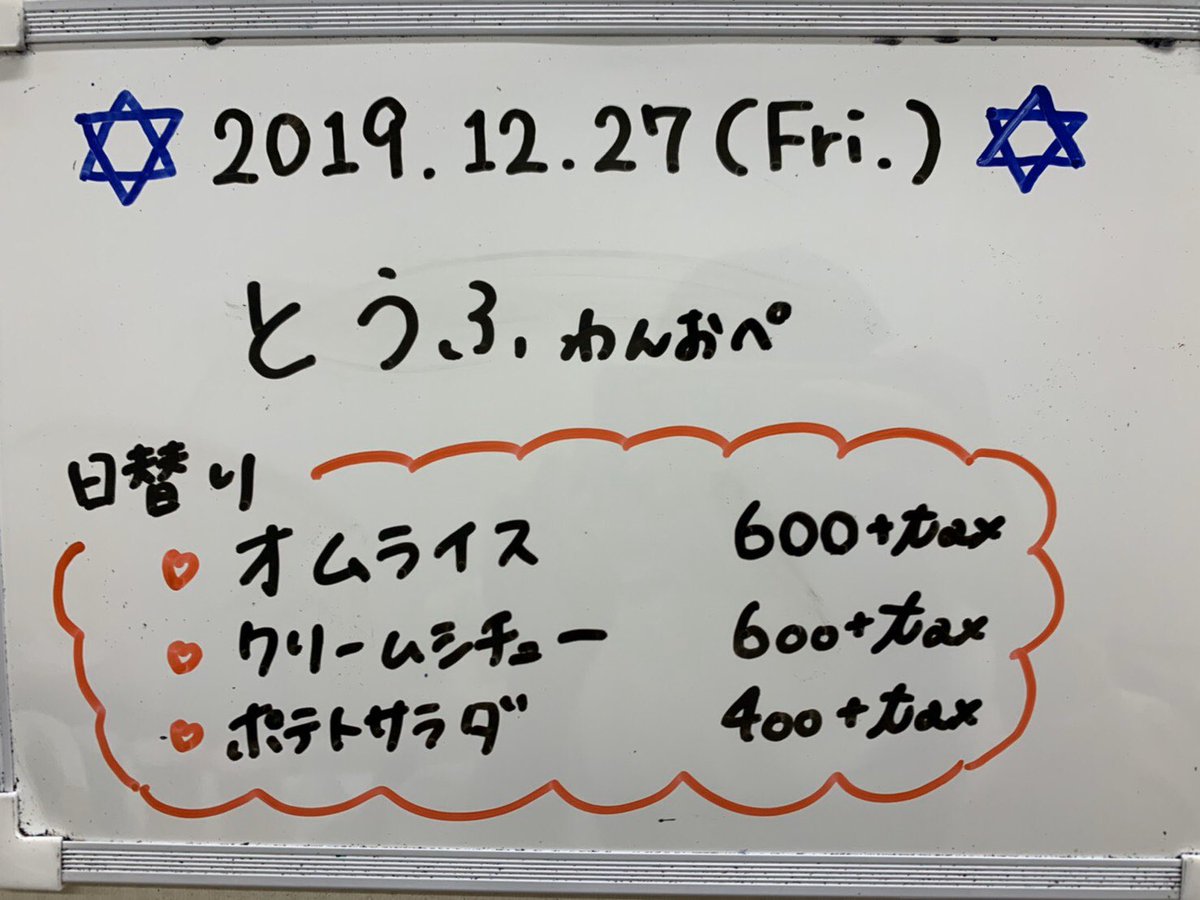 2019.12.27(Fri.)
とうふ わんおぺ
日替り
オムライス 600+tax
クリームシチュー 600+tax
ポテトサラダ 400+tax